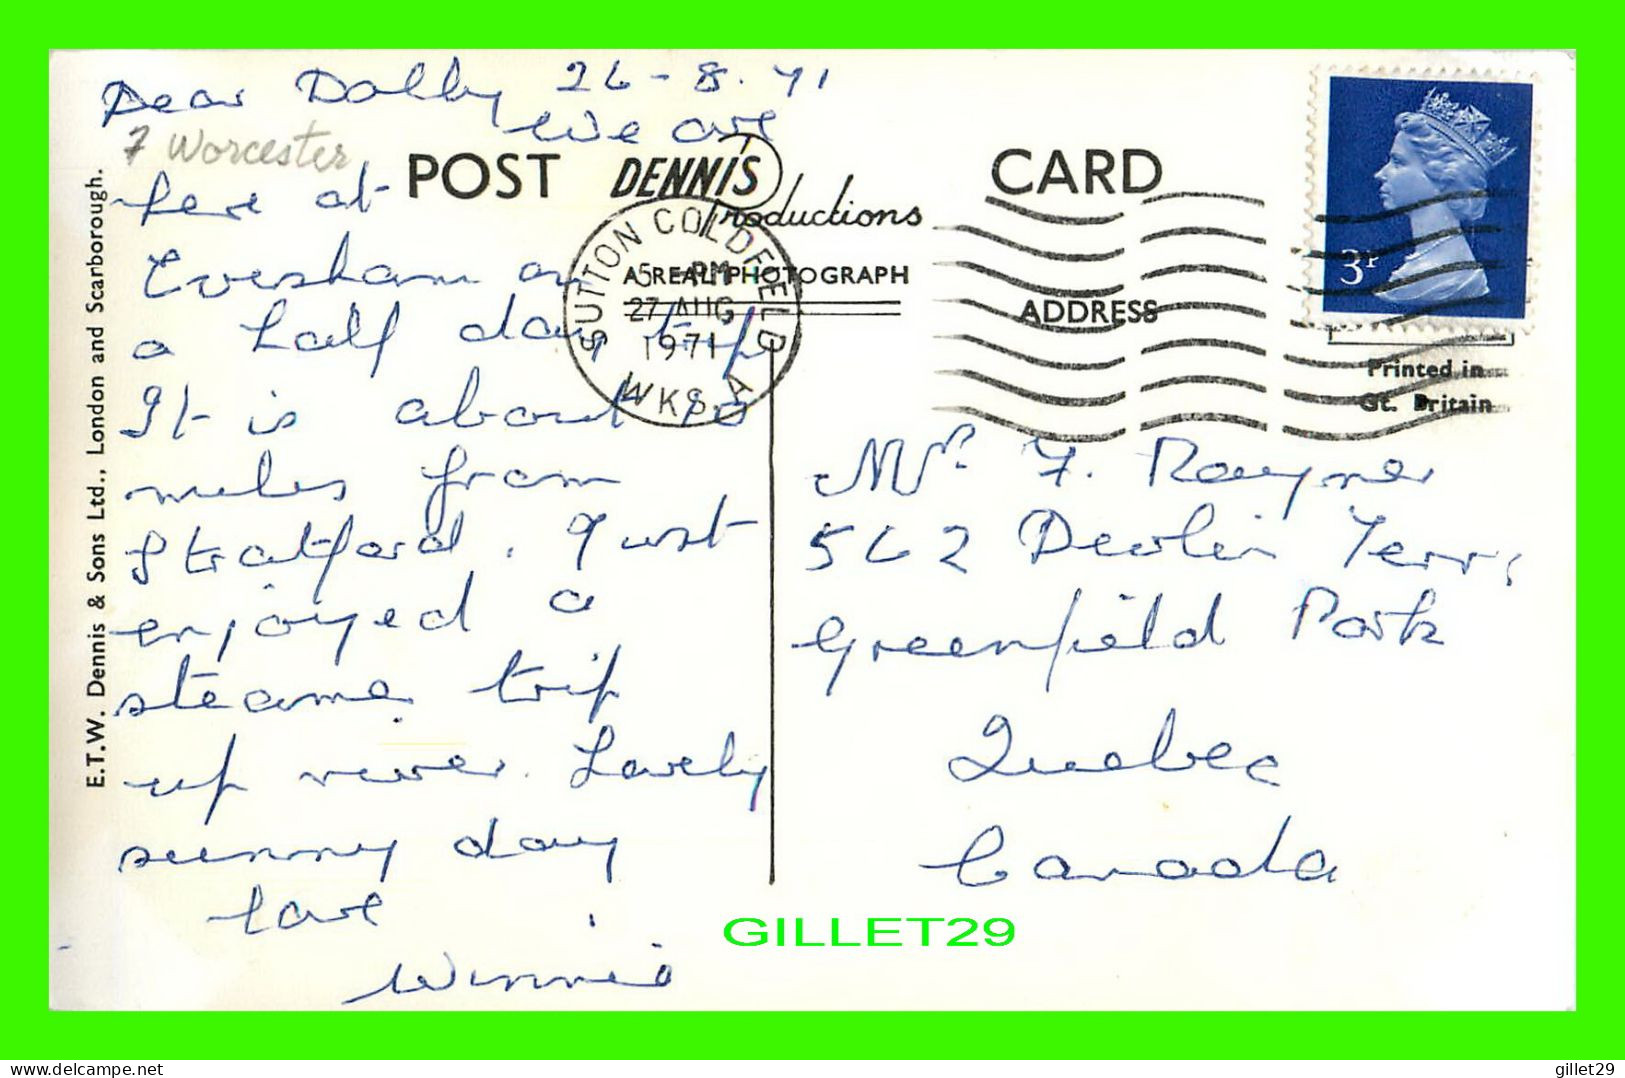 Dear Dolly 26-8.71
We are
7 Worcester
here at
Evesham on
a half day trip
It is about 10
miles from
Stratford. Just
enjoyed a
steamer trip
up river. Lovely
sunny day
love
Winnie
POST CARD
DENNIS
Productions
A REAL PHOTOGRAPH
ADDRESS
SUTTON COLDFIELD
5 - PM
27 AUG
1971
WKS. A
3P
Printed in
Gt. Britain
Mr. F. Rayner
562 Devlin Terr,
Greenfield Park
Quebec
Canada
E.T.W. Dennis & Sons Ltd., London and Scarborough.
GILLET29
www.delcampe.net
gillet29